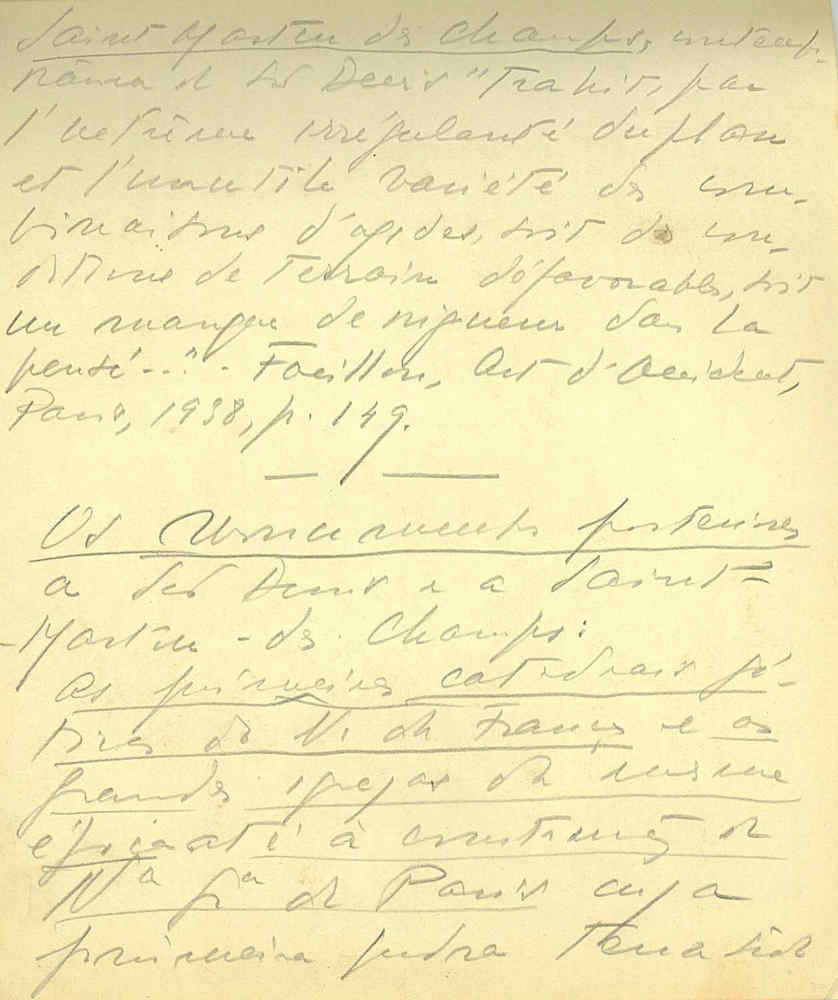 Saint Martin des Champs, contem-
rânea de St Denis "Trahit, par
l'extrême irrégularité du plan
et l'inutile variété des com-
binaisons d'ogives, soit des con-
ditions de terrain défavorables, soit
un manque de rigueur dans la
pensé--". - Focillon, Art d'Occident,
Paris, 1938, p. 149.
Os Monumentos posteriores
a St Denis e a Saint-
-Martin-des-Champs:
As primeiras catedrais gó-
ticas do N. de França e as
grandes igrejas da mesma
época até à construção de
Nª Srª de Paris cuja
primeira pedra